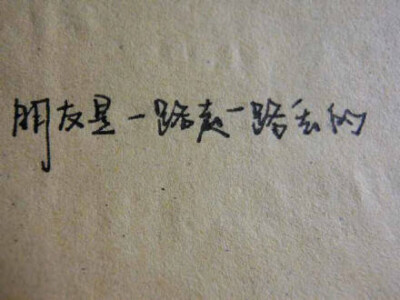 朋友是一路走一路丢的